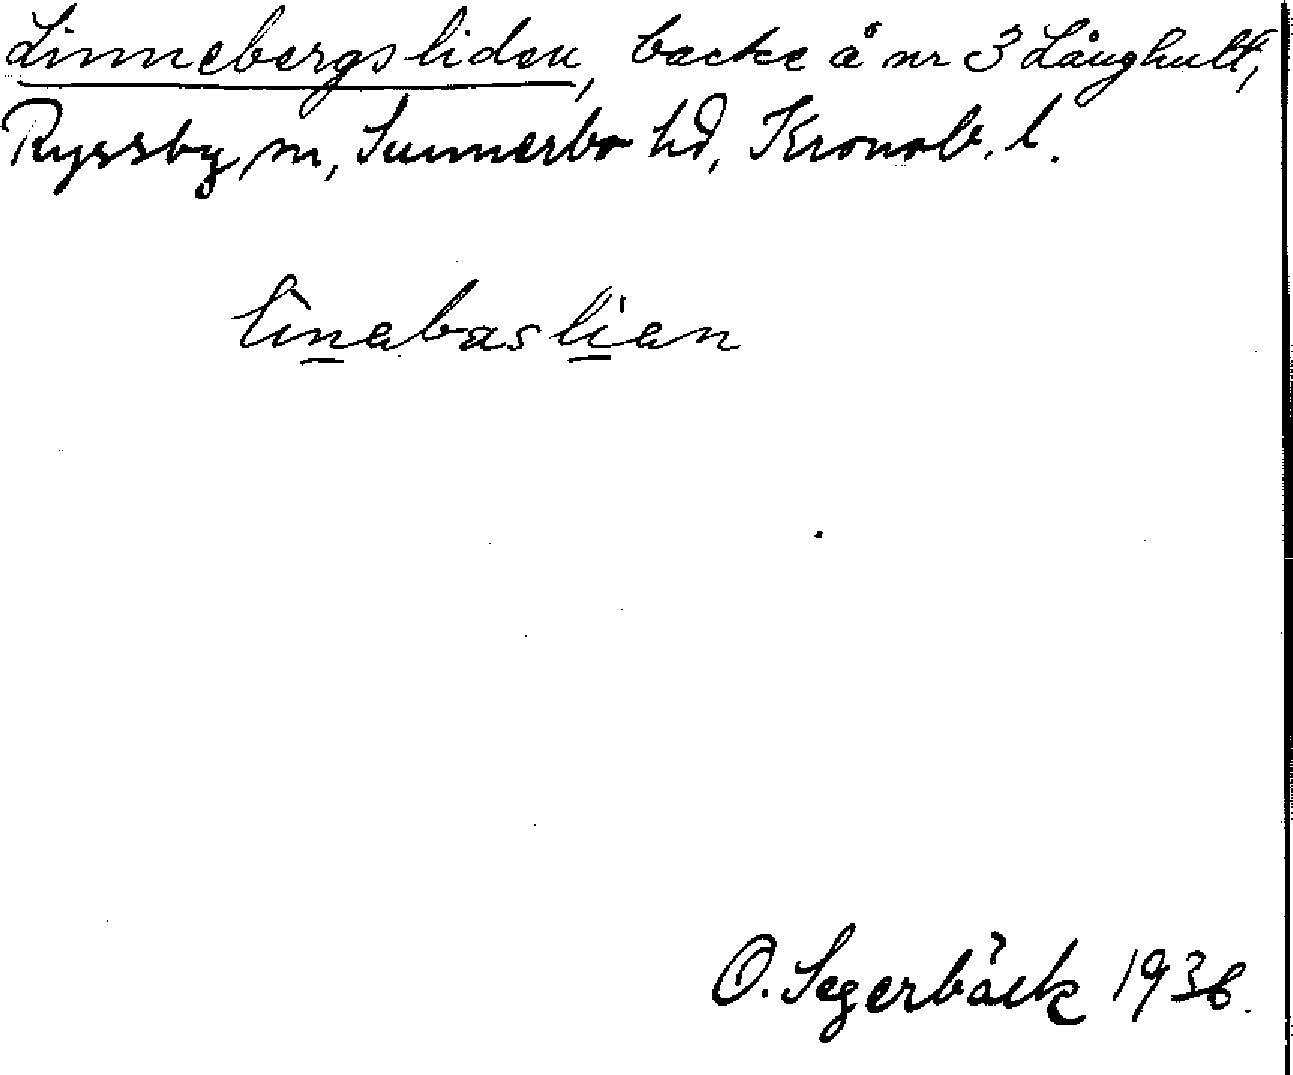 Linnebergsliden, backe å nr 3 Långhult,
Ryssby sn, Sunnerbo hd, Kronob. l.
lìnabaslían
O. Segerbäck 1936.